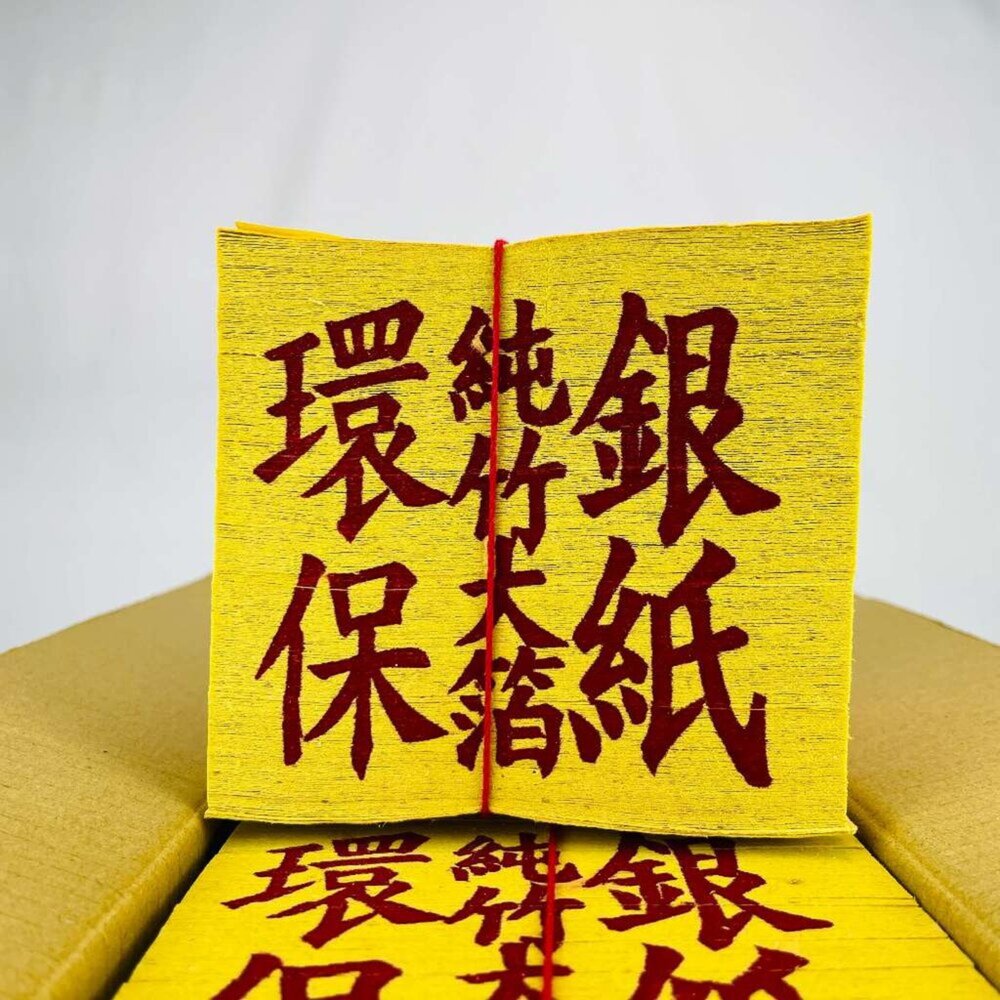 銀紙
純竹大箔
環保
銀
純竹大
環保